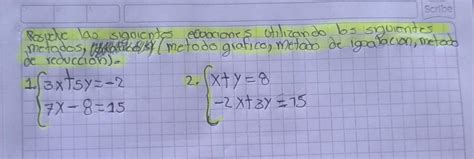 Scribe
Resuelve las siguientes ecuaciones utilizando los siguientes
metodos, (metodo grafico, metodo de igualacion, metodo
de reducción).
1. { 3x+5y=-2 2. { x+y=8
7x-8=15 -2x+3y=15